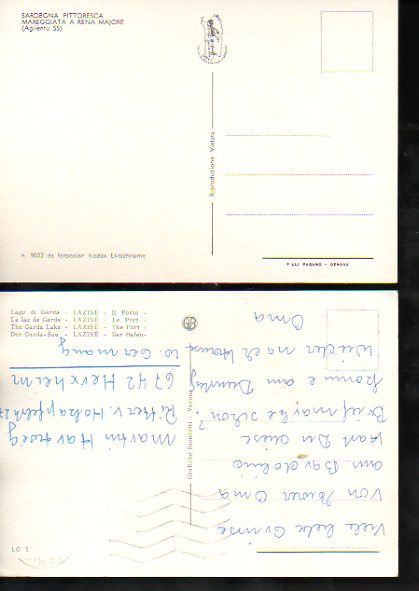 SARDEGNA PITTORESCA
MAREGGIATA A RENA MAJORE
(Aglientu SS)
Riproduzione Vietata
n. 9022 da fotocolor Kodak Ektachrome
F.LLI PAGANO - GENOVA
Lago di Garda - LAZISE - Il Porto -
Le lac de Garda - LAZISE - Le Port -
The Garda Lake - LAZISE - The Port -
Der Garda-See - LAZISE - Der Hafen-
Grafiche Verona
LG 1
Viele liebe Grüsse
von Eurer Oma
aus Bardolino
Hast Du diese
Briefmarke schon?
Komme am Dienstag
wieder nach Hause
Oma
Martin Hartweg
Ritter v.
6742 Herxheim
W. Germany